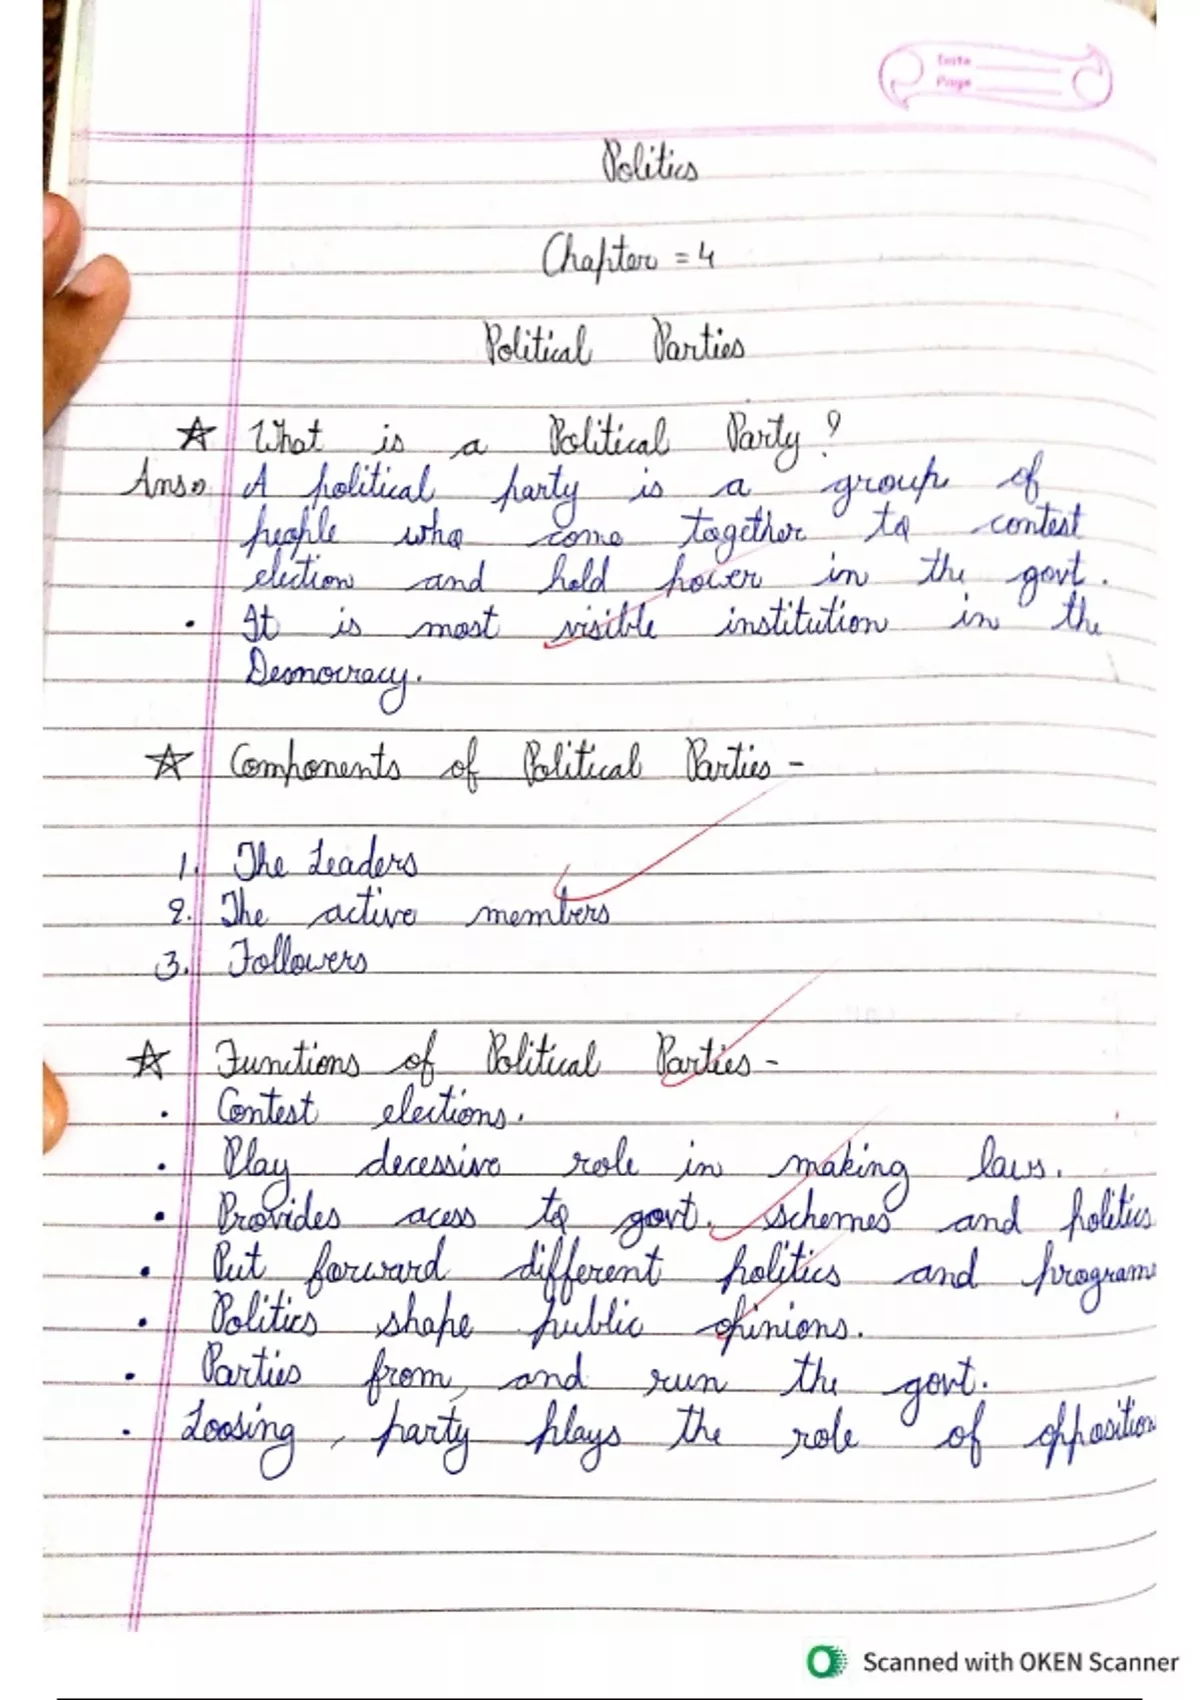 Date
Page
Politics
Chapter = 4
Political Parties
☆ What is a Political Party?
Ans» A political party is a group of
people who come together to contest
election and hold power in the govt.
• It is most visible institution in the
Democracy.
☆ Components of Political Parties -
1. The Leaders
2. The active members
3. Followers
☆ Functions of Political Parties -
• Contest elections.
• Play decessive role in making laws.
• Provides acess to govt. schemes and politics
• Put forward different politics and programs
• Politics shape public opinions.
• Parties from, and run the govt.
• Loosing, party plays the role of opposition
Scanned with OKEN Scanner